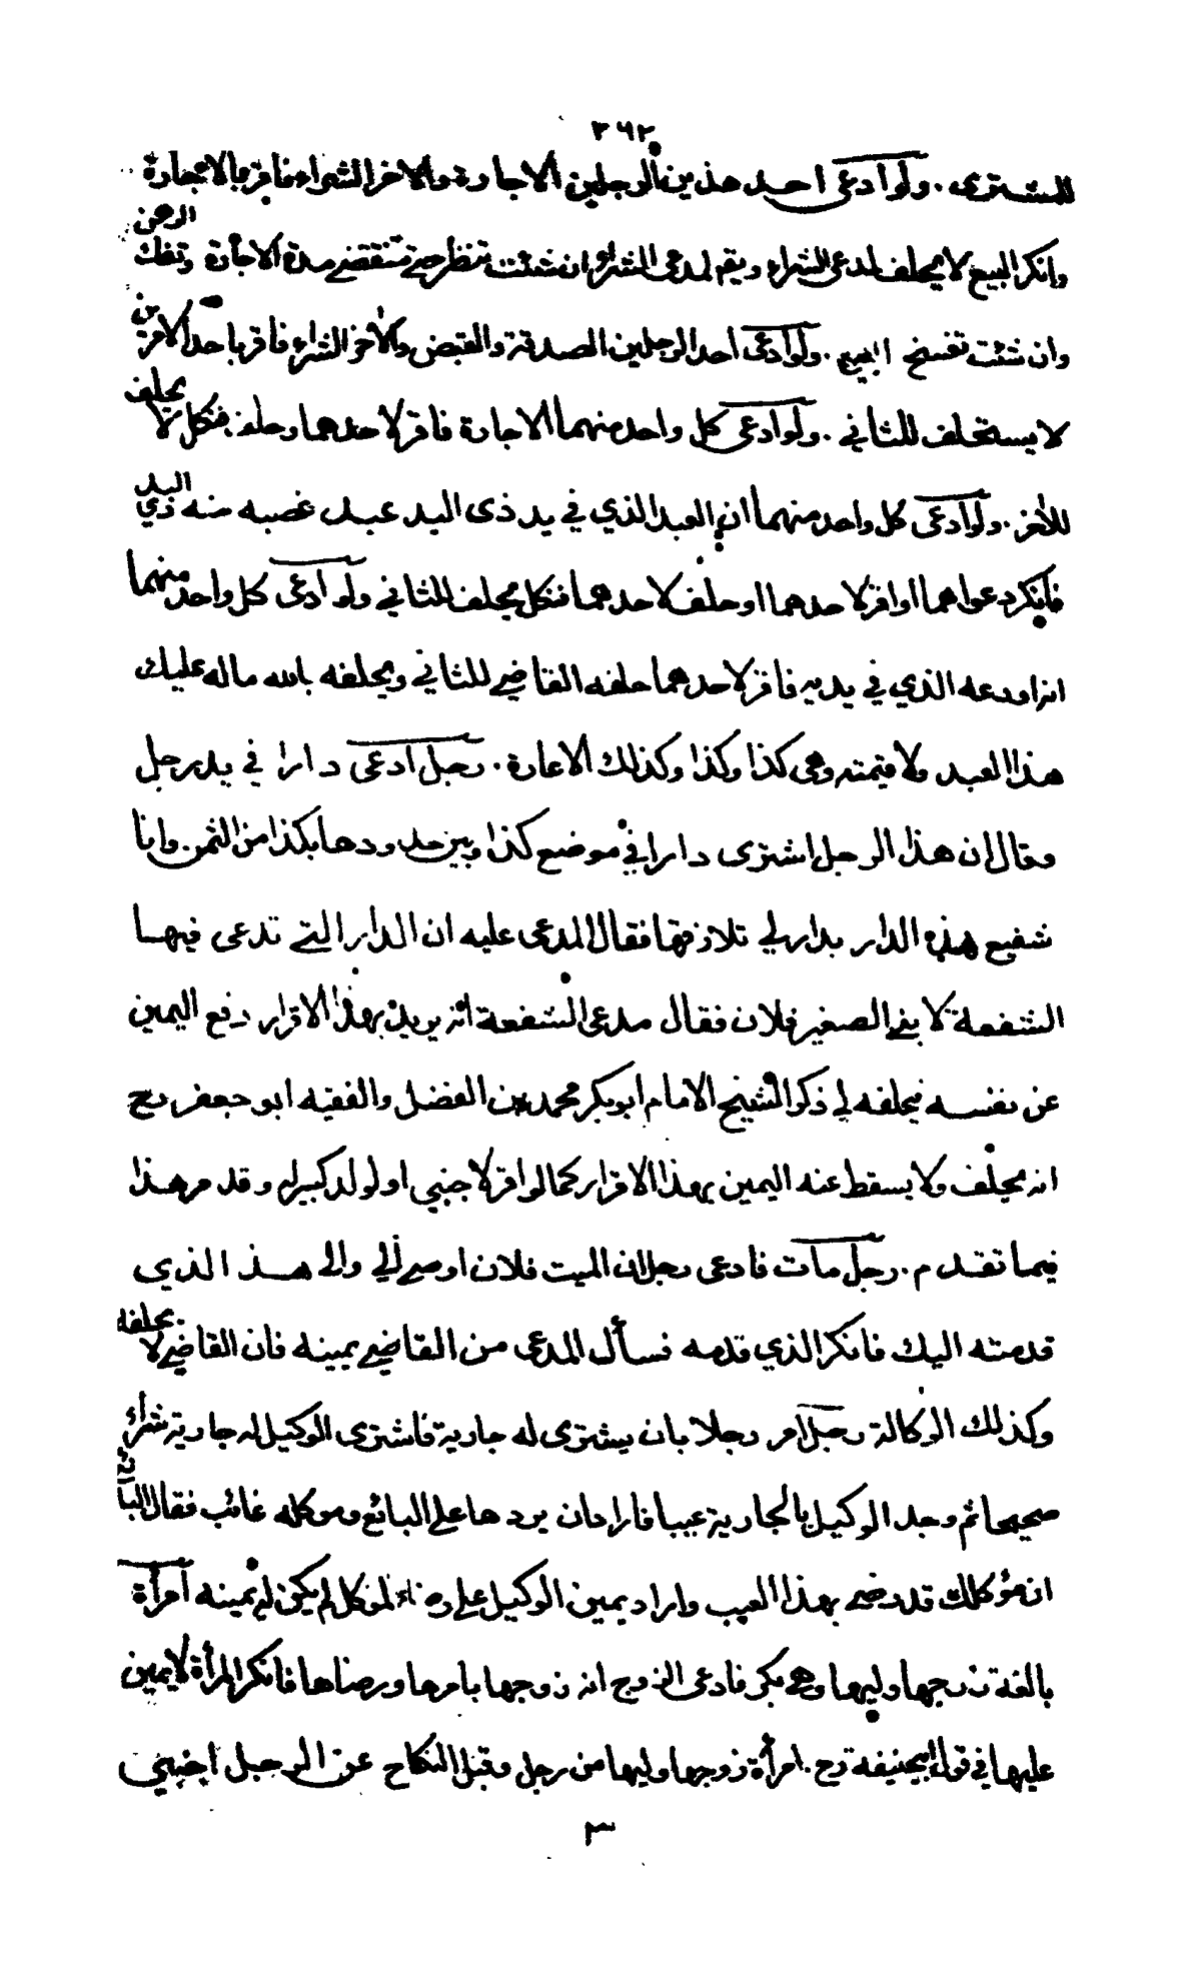 ٣٦٢
للمشترى . ولو ادعى احد هذين الرجلين الاجارة والاخر الشراء فاقر بالاجارة
وانكر البيع لا يحلف لمدعى الشراء ويقم لمدعى الشراء ان شئت تنتظر حتى تنقضي مدة الاجارة وتفك الرهن
وان شئت تفسخ البيع . ولو ادعى احد الرجلين الصدقة والقبض والاخر الشراء فاقر باحد الامرين
لا يستحلف للثاني . ولو ادعى كل واحد منهما الاجارة فاقر لاحدهما وحلف فنكل لا يحلف
للأخر . ولو ادعى كل واحد منهما ان العبد الذي في يد ذى اليد عبد غصبه منه ذي اليد
فانكر دعواهما او اقر لاحدهما او حلف لاحدهما فنكل يحلف للثاني ولو ادعى كل واحد منهما
انه اودعه الذي في يديه فاقر لاحدهما حلفه القاضي للثاني ويحلفه بالله ماله عليك
هذا العبد ولا قيمته وهى كذا وكذا وكذلك الاعارة . رجل ادعى دارا في يد رجل
وقال ان هذا الرجل اشترى دارا في موضع كذا وبين حدودها بكذا من الثمن . وانا
شفيع هذه الدار بدار لي تلازقها فقال المدعى عليه ان الدار التي تدعى فيها
الشفعة لابني الصغير فلان فقال مدعى الشفعة انه يريد بهذا الاقرار دفع اليمين
عن نفسه فيحلفه لي ذكر الشيخ الامام ابو بكر محمد بن الفضل والفقيه ابو جعفر رح
انه يحلف ولا يسقط عنه اليمين بهذا الاقرار كما لو اقر لاجنبي او لولد كبير له وقد مر هذا
فيما تقدم . رجل مات فادعى رجل ان الميت فلان اوصى الي والى هذا الذي
قدمته اليك فانكر الذي قدمه فسأل المدعى من القاضي يمينه فان القاضي لا يحلفه
وكذلك الوكالة رجل امر رجلا بان يشترى له جارية فاشترى الوكيل له جارية شراء
صحيحا ثم وجد الوكيل بالجارية عيبا فاراد ان يردها على البائع وموكله غائب فقال البائع
ان مؤكلك قد رضي بهذا العيب واراد يمين الوكيل على رضاء المؤكل لم يكن له يمينه امرأة
بالغة زوجها وليها وهي بكر فادعى الزوج انه زوجها بامرها ورضاها فانكر المرأة لا يمين
عليها في قول ابيحنيفة رح . امرأة زوجها وليها من رجل وقبل النكاح عن الرجل اجنبي
٣